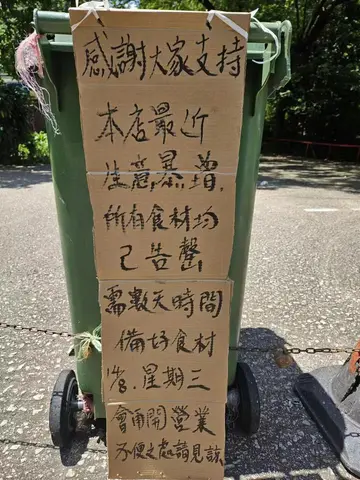 感謝大家支持
本店最近
生意暴增,
所有食材均
已告罄
需數天時間
備好食材
1/8.星期三
會再開營業
不便之處請見諒